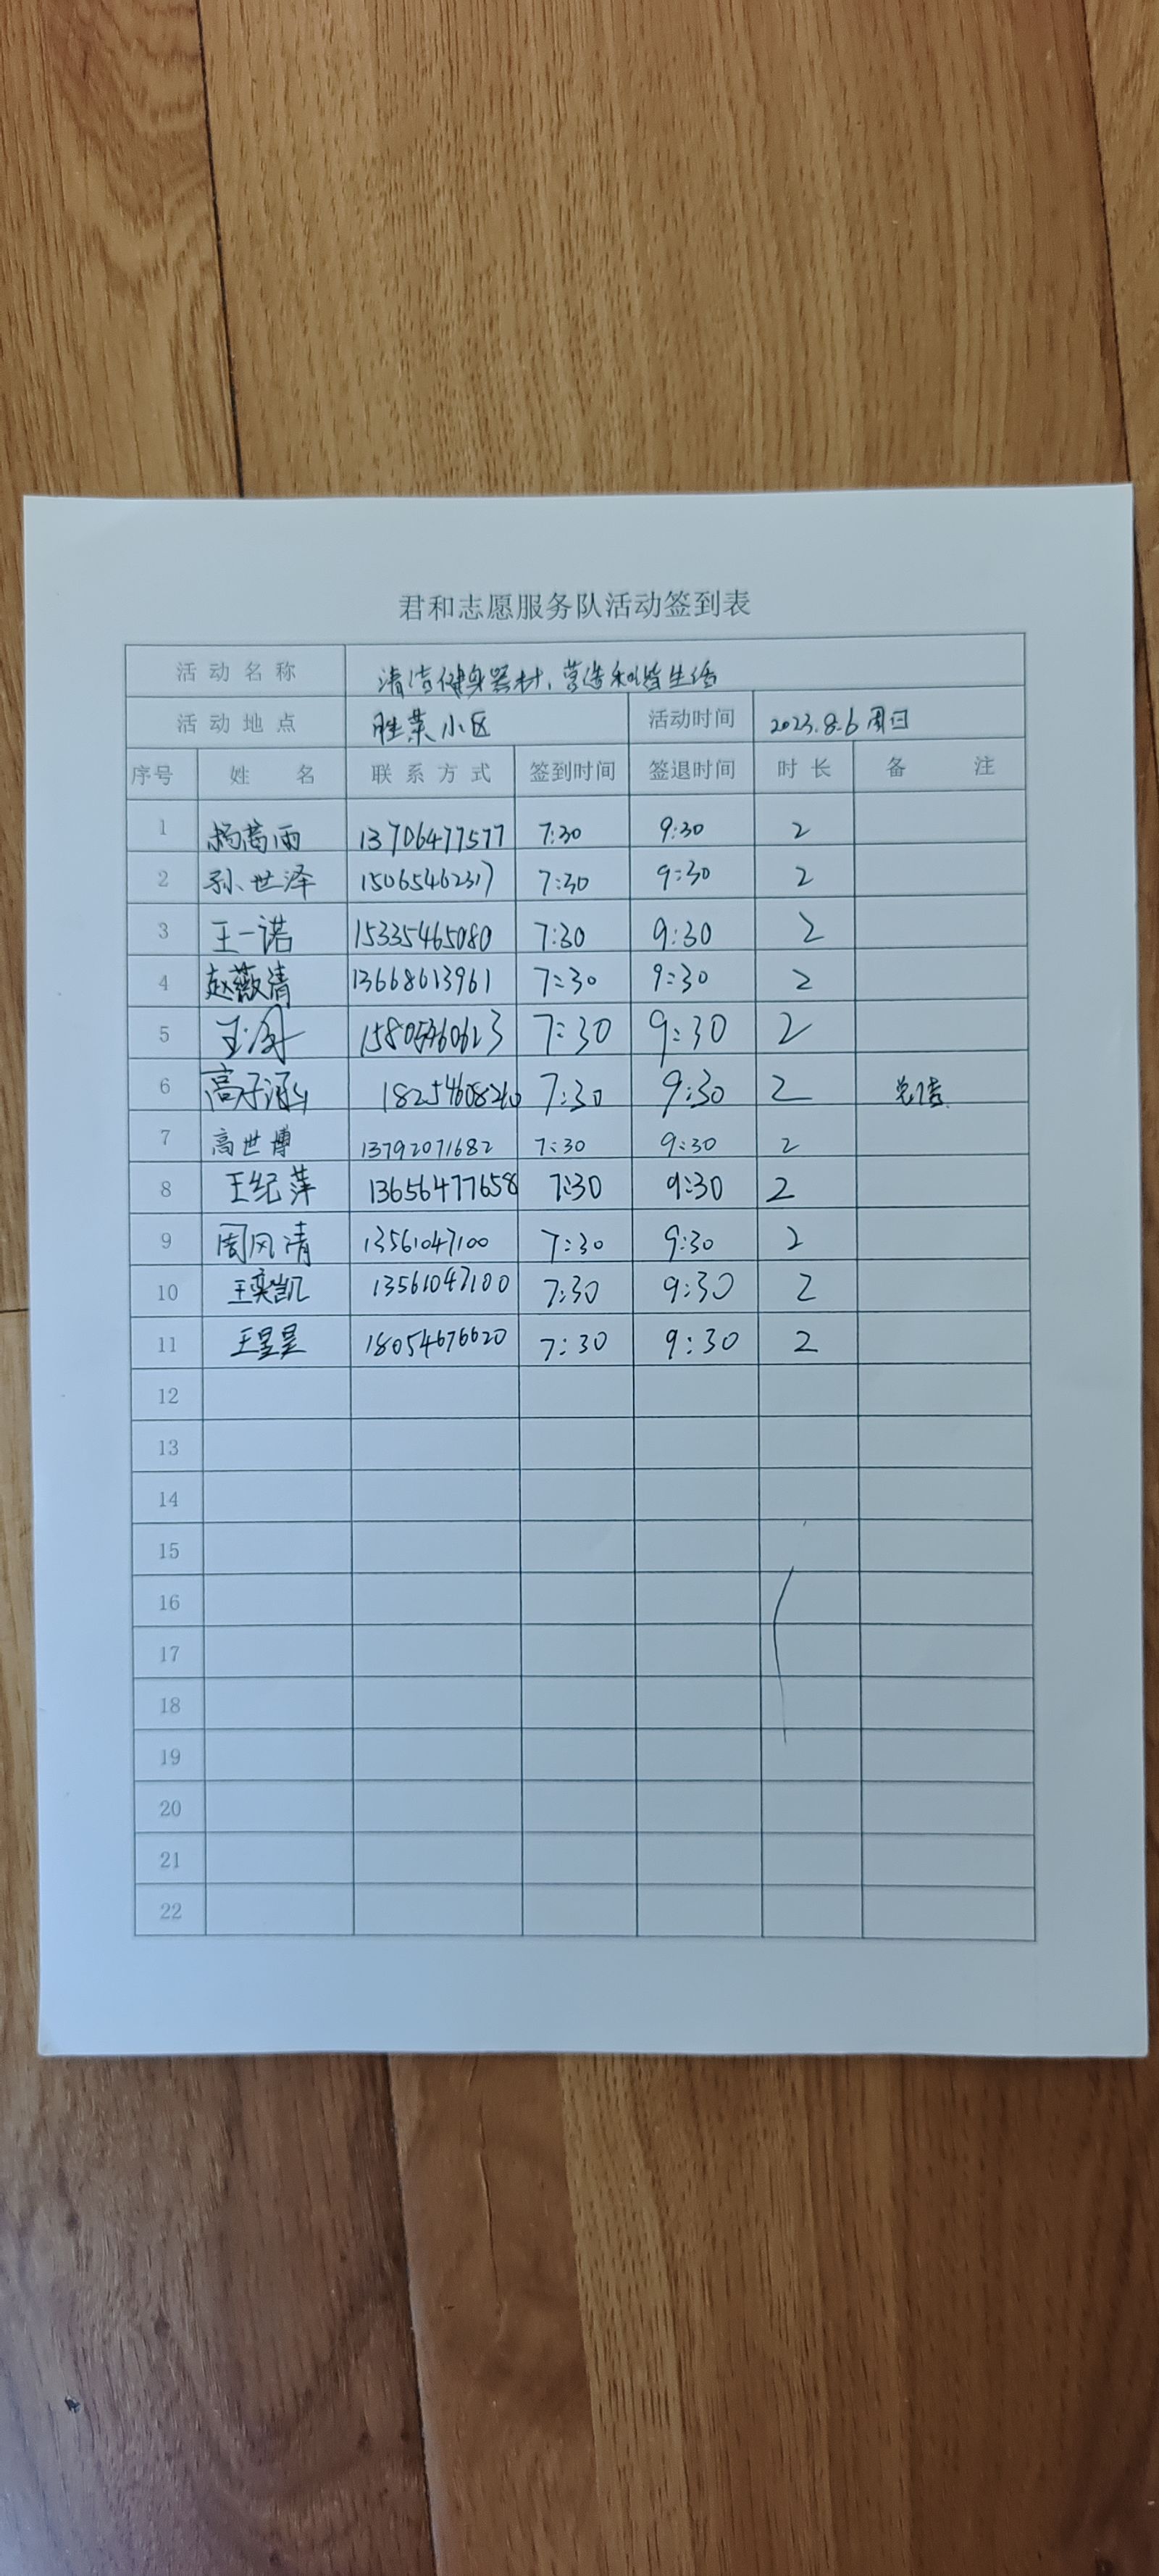 君和志愿服务队活动签到表
活动名称 清洁健身器材，营造和谐生活
活动地点 胜采小区 活动时间 2023.8.6 周日
序号 姓名 联系方式 签到时间 签退时间 时长 备注
1 杨茜雨 13706477577 7:30 9:30 2
2 孙世泽 15065462317 7:30 9:30 2
3 王一诺 15335465080 7:30 9:30 2
4 赵薇清 13668613961 7:30 9:30 2
5 7:30 9:30 2
6 高子涵 18254608260 7:30 9:30 2 总结
7 高世博 13792071682 7:30 9:30 2
8 王纪萍 13656477658 7:30 9:30 2
9 周风清 13561047100 7:30 9:30 2
10 王奕凯 13561047100 7:30 9:30 2
11 王昱昊 18054676620 7:30 9:30 2
12
13
14
15
16
17
18
19
20
21
22